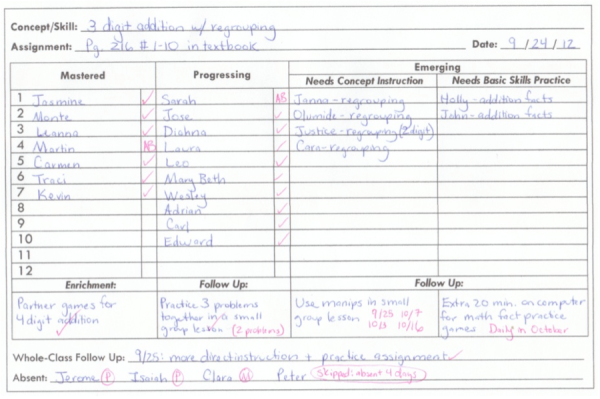 Concept/Skill: 3 digit addition w/ regrouping
Assignment: Pg. 216 #1-10 in textbook Date: 9/24/12
Mastered Progressing Emerging
Needs Concept Instruction Needs Basic Skills Practice
1 Jasmine ✓ Sarah AB Janna-regrouping Holly-addition facts
2 Monte ✓ Jose ✓ Olumide-regrouping John-addition facts
3 Leanna ✓ Diahna ✓ Justice-regrouping (2 digit)
4 Martin AB Laura ✓ Cara-regrouping
5 Carmen ✓ Leo ✓
6 Traci ✓ Mary Beth ✓
7 Kevin ✓ Wesley ✓
8 Adrian ✓
9 Carl ✓
10 Edward ✓
11
12
Enrichment: Follow Up: Follow Up:
Partner games for Practice 3 problems Use manips in small Extra 20 min. on computer
4 digit addition ✓ together in a small group lesson 9/25 10/7 for math fact practice
group lesson (2 problems) 10/3 10/16 games Daily in October
Whole-Class Follow Up: 9/25: more direct instruction + practice assignment ✓
Absent: Jerome (P) Isaiah (P) Clara (M) Peter (skipped: absent 4 days)